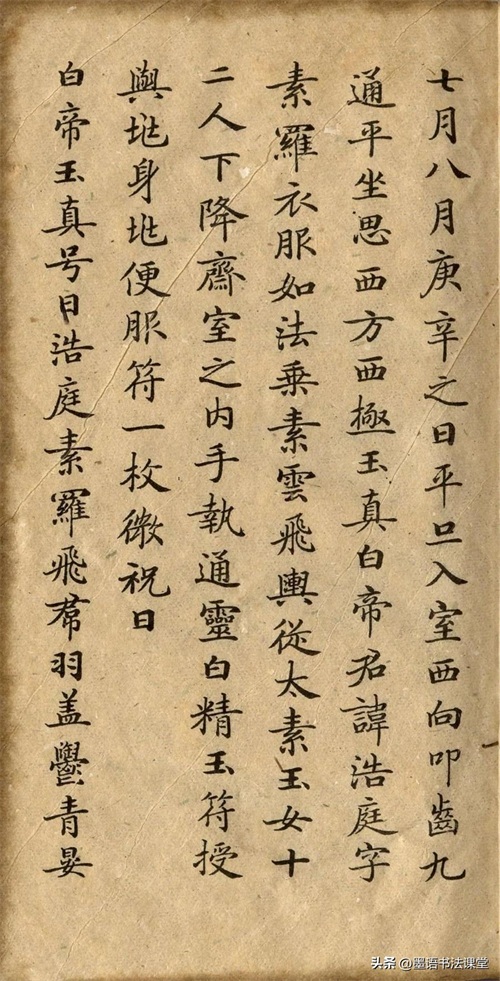 七月八月庚辛之日平旦入室西向叩齒九
通平坐思西方西極玉真白帝君諱浩庭字
素羅衣服如法乗素雲飛輿從太素玉女十
二人下降齋室之内手執通靈白精玉符授
與兆身兆便服符一枚微祝曰
白帝玉真号曰浩庭素羅飛帬羽盖鬱青晏
头条 @墨语书法课堂